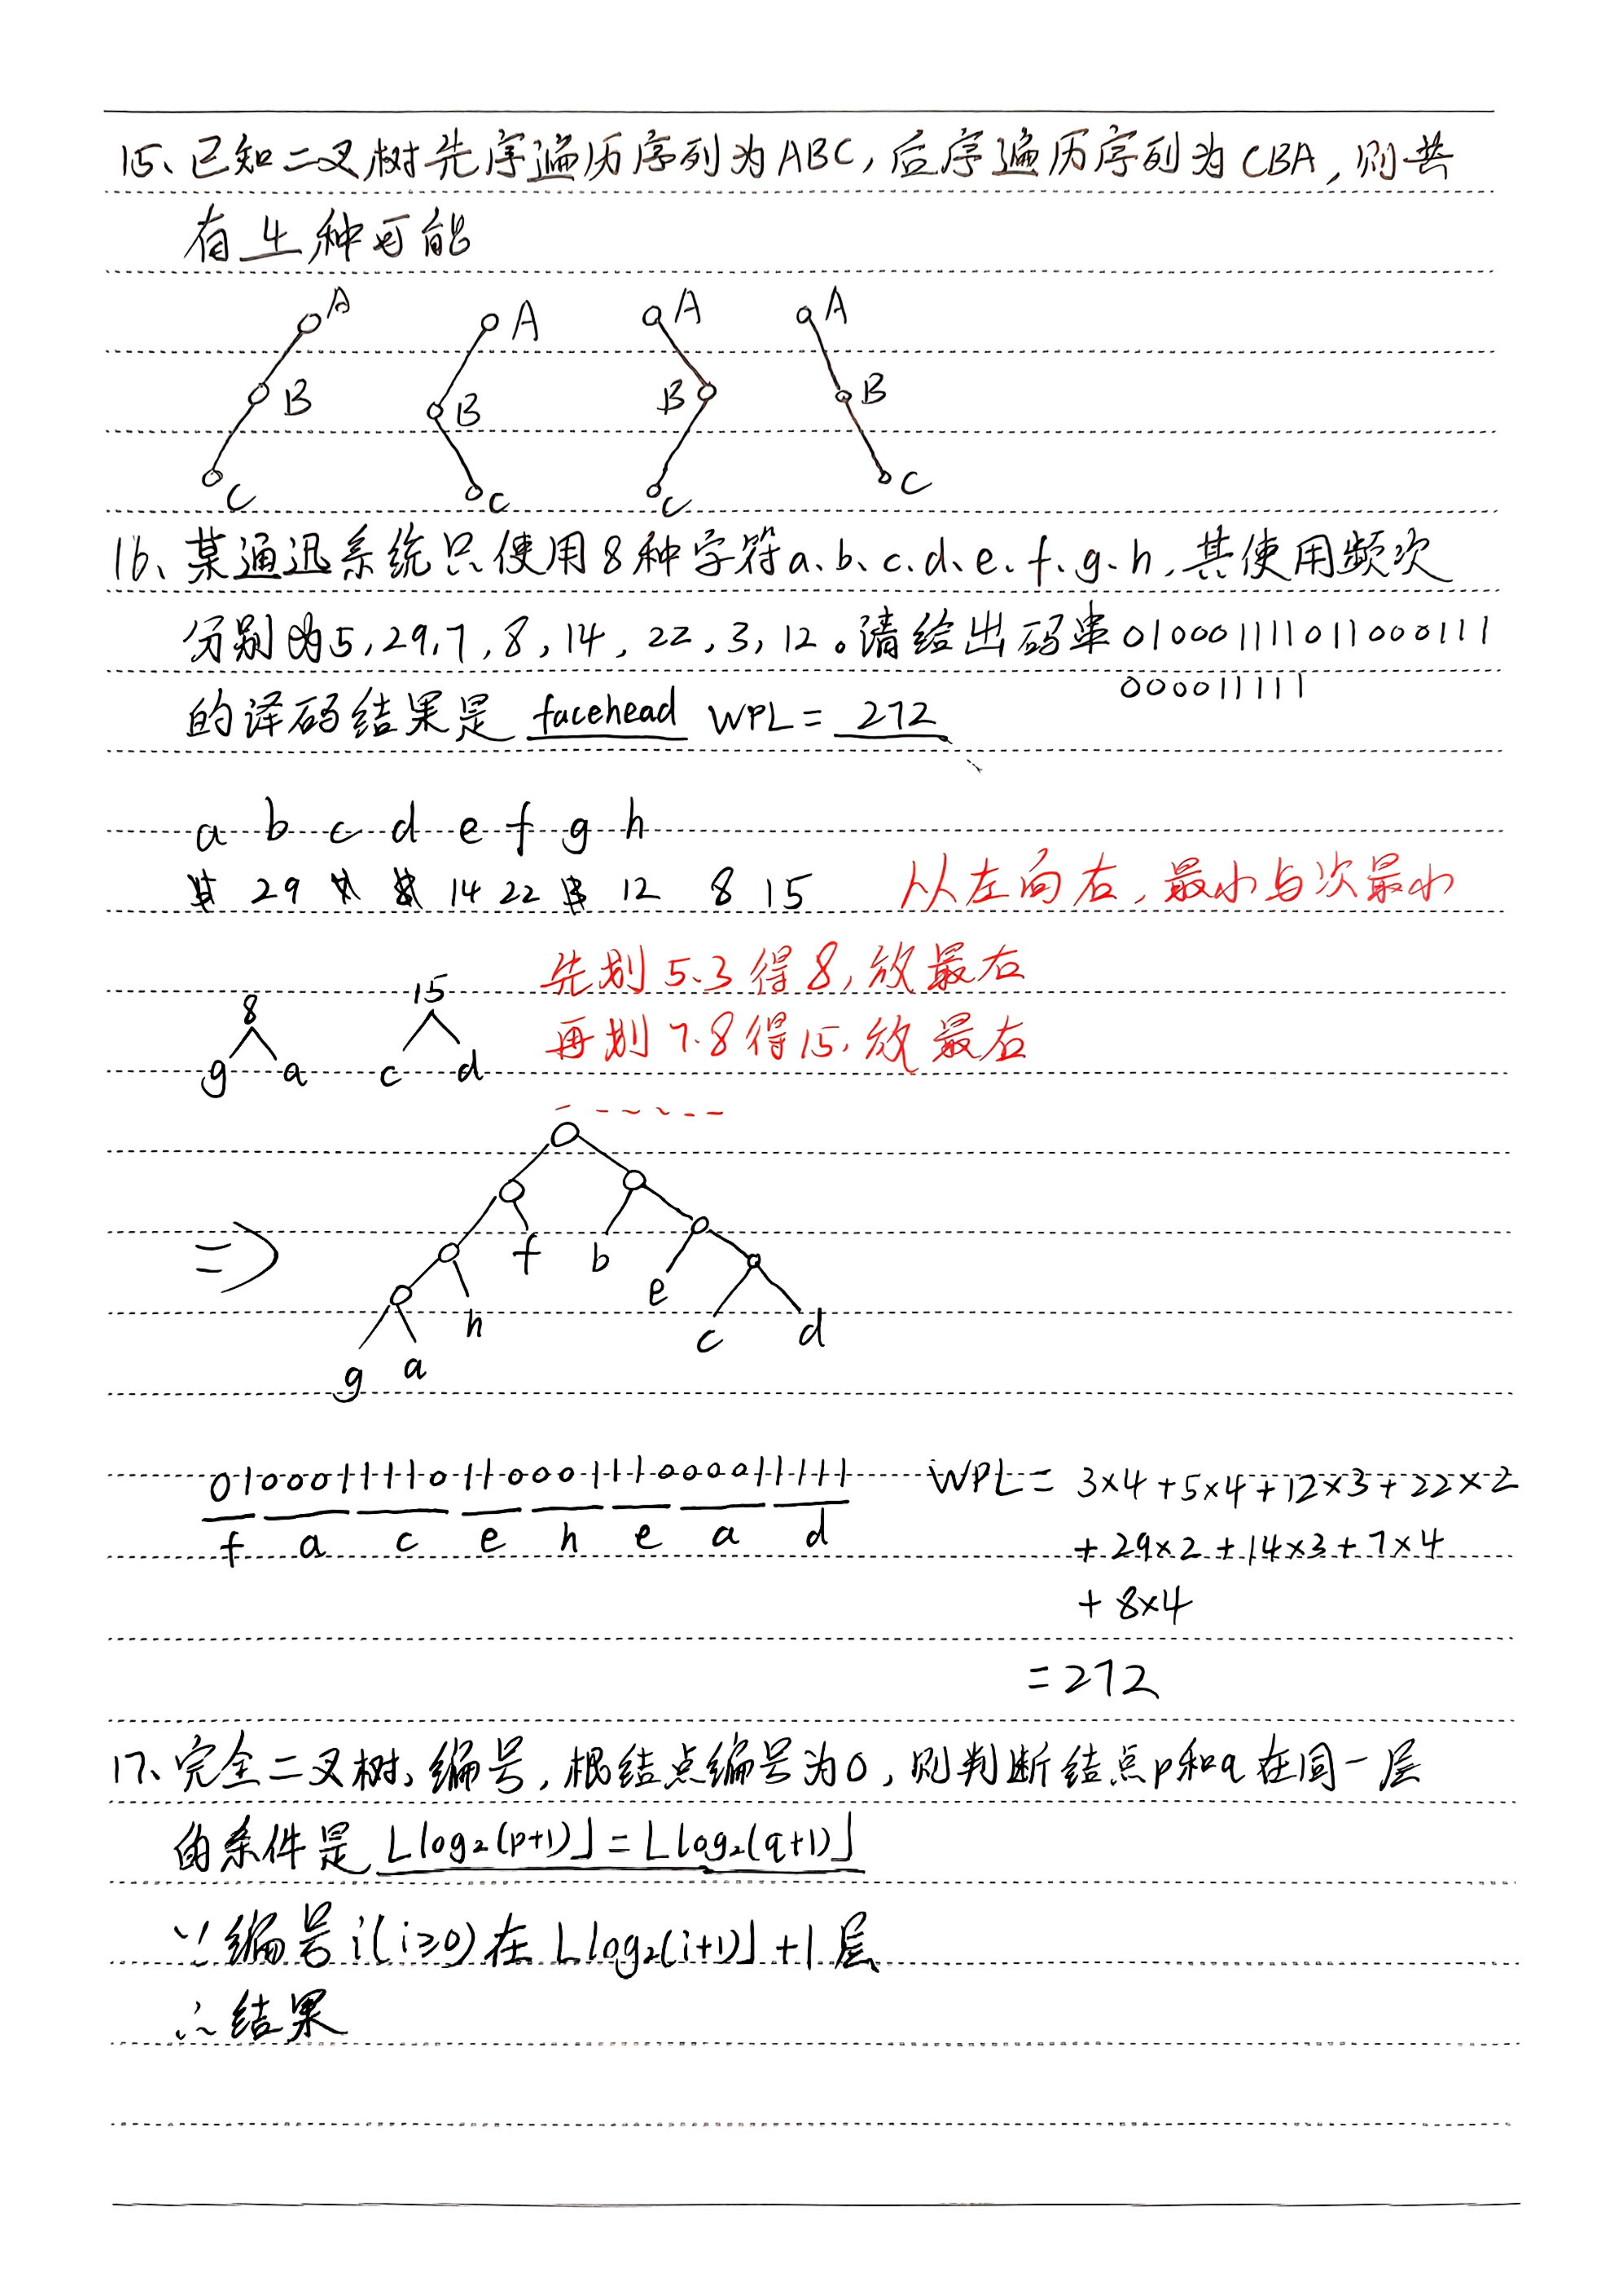 15、已知二叉树先序遍历序列为ABC,后序遍历序列为CBA,则共
有 4 种可能
A A A A
B B B B
C C C C
16、某通迅系统只使用8种字符a、b、c、d、e、f、g、h,其使用频次
分别为5,29,7,8,14,22,3,12。请给出码串010001111011000111
000011111
的译码结果是 facehead WPL= 272
a b c d e f g h
5 29 7 8 14 22 3 12 8 15 从左向右,最小与次最小
先划5、3得8,放最右
8 15
再划7、8得15,放最右
g a c d
=> f b
e
h c d
g a
010001111011000111000011111 WPL= 3×4+5×4+12×3+22×2
f a c e h e a d +29×2+14×3+7×4
+8×4
=272
17、完全二叉树,编号,根结点编号为0,则判断结点p和q在同一层
的条件是 ⌊log₂(p+1)⌋=⌊log₂(q+1)⌋
∵编号i(i≥0)在⌊log₂(i+1)⌋+1层
∴结果